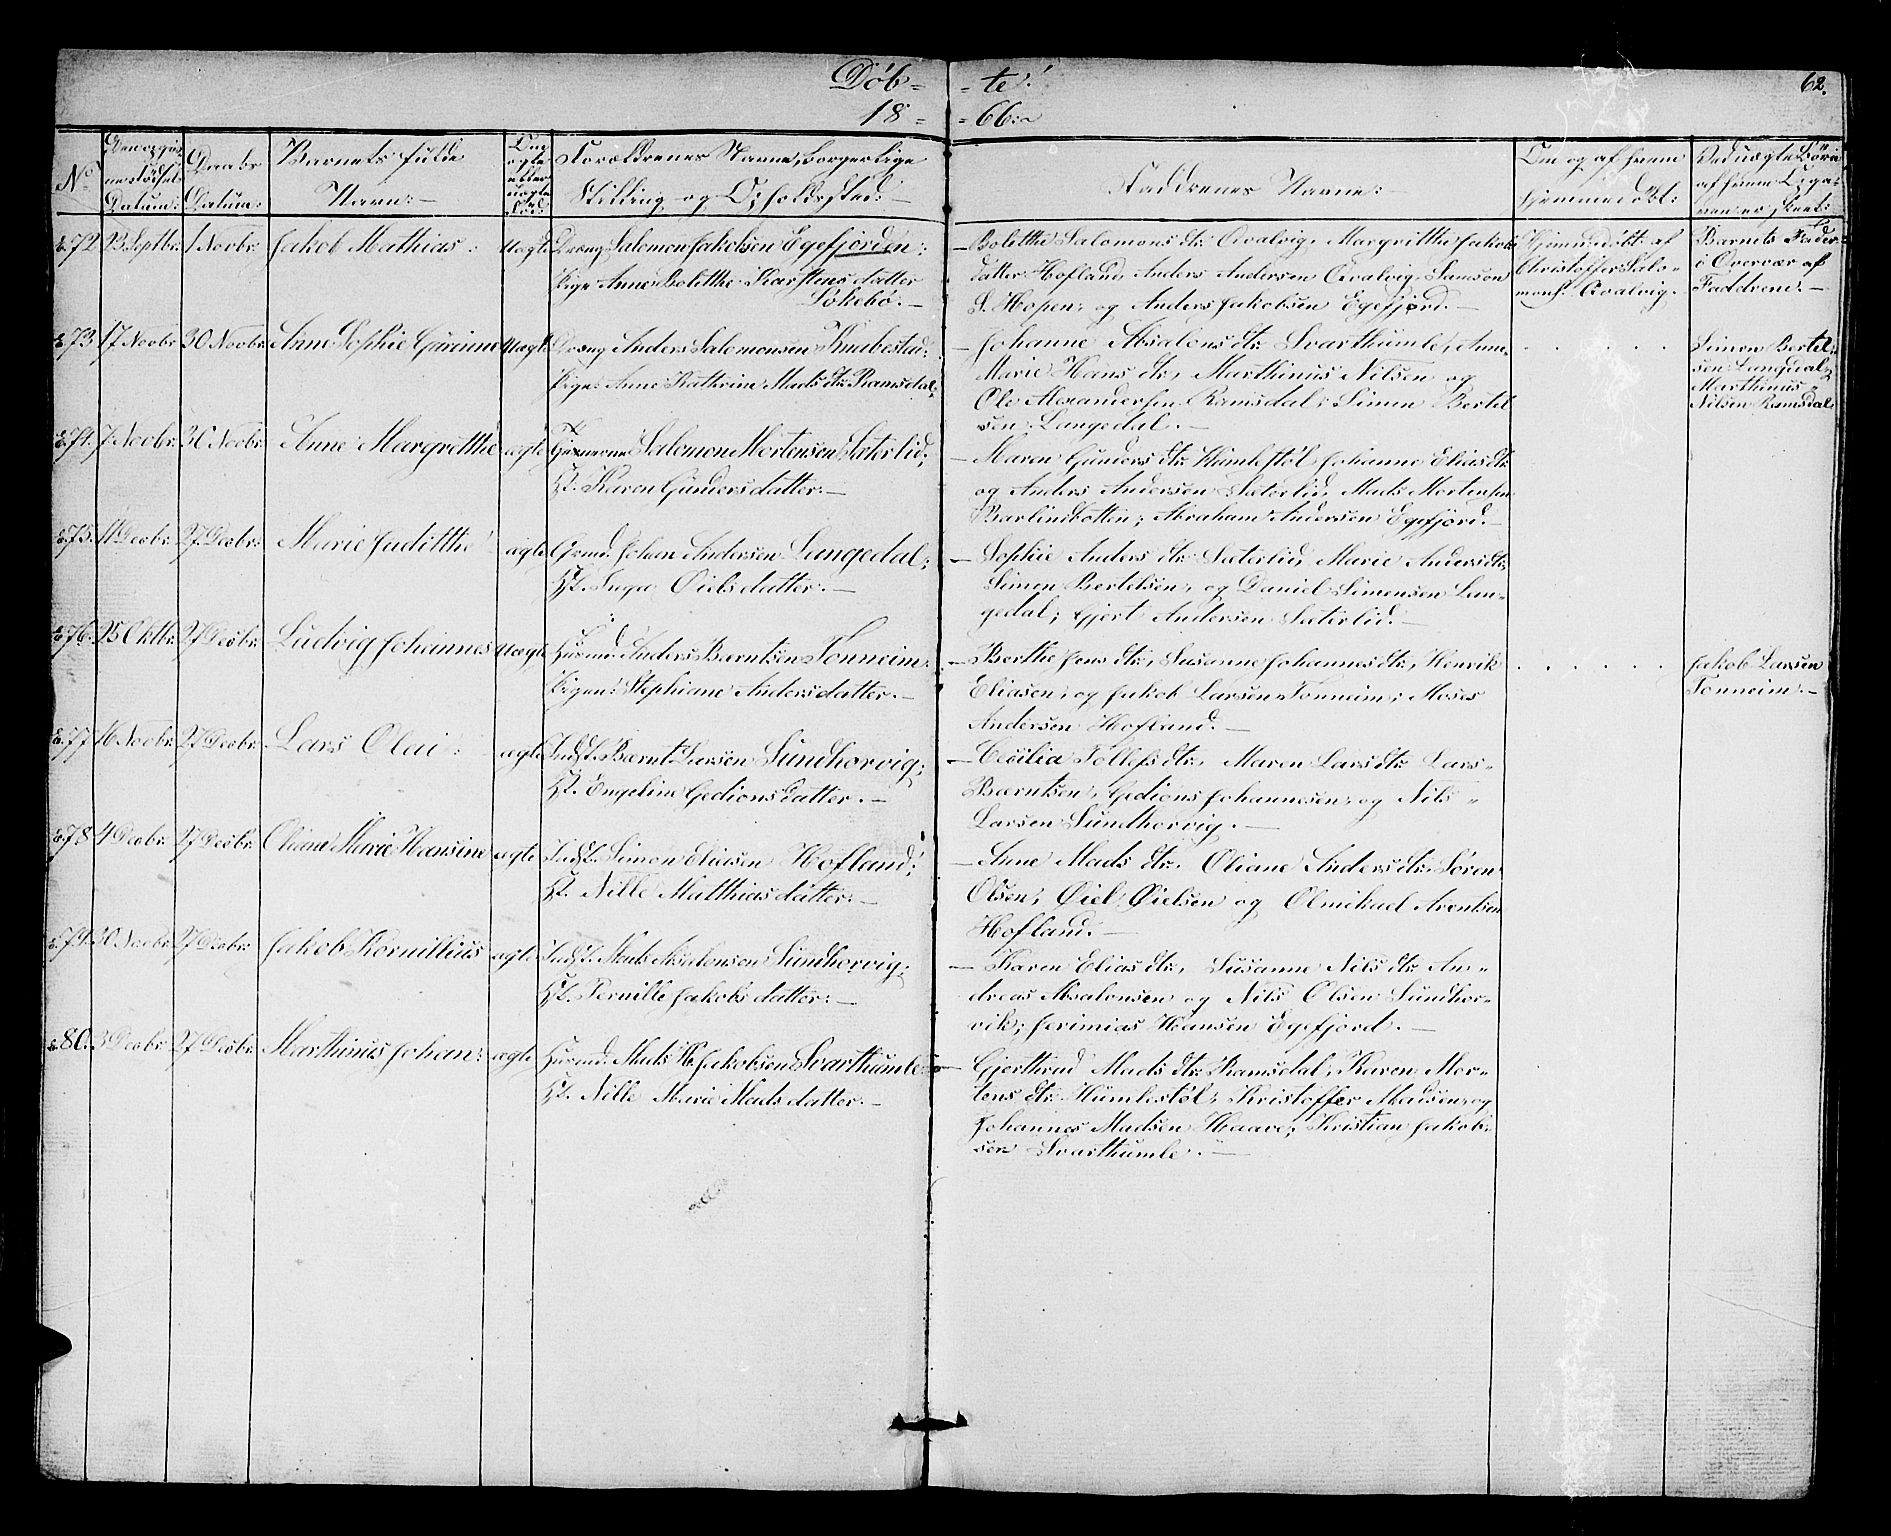 Døb= =te!
18= =66:
62.
No
Barnets fulde
Navn:
Daabs
Datum:
Forældrenes Navne, borgerlige
Stilling og Opholdssted:
Faddrenes Navne:
Om og af hvem
hjemmedøbt:
72. 23 Septbr. 1 Novbr. Jakob Mathias: Uægte Dreng Salomon Jakobsen Egefjorden:
Pige Anne Bolitthe Karstensdatter
Løkebø.
Bolitthe Salomonsdtr. Qvalvig, Margritthe Jakobs
datter Hofland, Anders Andersen Qvalvig, Samson
S. Hopen, og Anders Jakobsen Egefjord.
Hjemmedøbt af
Christoffer Salo-
mons. Qvalvig.
Barnets Fader
i Overvær af
Faddrene.
73. 17 Novbr. 30 Novbr. Anne Sophie Gurinne Uægte Dreng Anders Salomonsen Knubestad:
Pige: Anne Kathrine Madsdtr. Ramsdal.
Johanne Absalonsdtr. Svarthumle, Anne
Marie Hansdtr., Marthinus Nilsen og
Ole Alexandersen Ramsdal; Simon Bertel
sen Langedal.
Simon Bertel-
sen Langedal,
Marthinus
Nilsen Ramsdal
74. 7 Novbr. 30 Novbr. Anne Margretthe ægte Salomon Mortensen Sæterlid;
H. Karen Gundersdatter:
Maren Gundersdtr. Humlestøl, Johanne Eliasdtr.
og Anders Andersen Sæterlid, Mads Mortensen
Barlindbotten; Abraham Andersen Egefjord.
75. 11 Decbr. 27 Decbr. Marie Juditthe ægte Grmd. Johan Andersen Langedal;
H. Inga Øielsdatter.
Sophie Andersdtr. Sæterlid, Marie Andersdtr.
Simon Bertelsen, og Daniel Simonsen Lan-
gedal; Gjert Andersen Sæterlid.
76. 25 Oktbr. 27 Decbr. Ludvig Johannes Uægte Husmd. Anders Bærntsen Tonneim.
Pigen: Stephiane Andersdatter.
Berthe Jensdtr., Susanne Johannesdtr., Henrik
Eliasen, og Jakob Larsen Tonneim; Moses
Andersen Hofland.
Jakob Larsen
Tonneim.
77. 16 Novbr. 27 Decbr. Lars Olai: ægte Indst. Bærnt Larsen Sundhorvig;
H. Engeline Gedionsdatter.
Cecilia Tollefsdtr., Maren Larsdtr. Lars
Bærntsen, Gedions Johannesen, og Nils
Larsen Sundhorvig.
78 4 Decbr. 27 Decbr. Oliane Marie Hansine ægte Indst. Simon Eliasen Hofland;
H. Nille Matthiasdatter:
Anne Madsdtr. Oliane Andersdtr. Søren
Olsen, Øiel Øielsen og Olmikael Arentsen
Hofland.
79. 30 Novbr. 27 Decbr. Jakob Kornillius ægte Indst. Mads Absalonsen Sundhorvig;
H. Pernille Jakobsdatter:
Karen Eliasdtr., Susanne Nilsdtr. An-
dreas Absalonsen og Nils Olsen Sundhor-
vik; Jerimias Hansen Egefjord.
80. 3 Decbr. 27 Decbr. Marthinus Johan: ægte Husmd. Mads Kr. Jakobsen Svarthumle:
H. Nille Marie Madsdatter.
Gjerthrud Madsdtr. Ramsdal, Karen Mor-
tensdtr. Humlestøl, Kristoffer Madsen, og
Johannes Madsen Haave; Kristian Jakob-
sen Svarthumle.